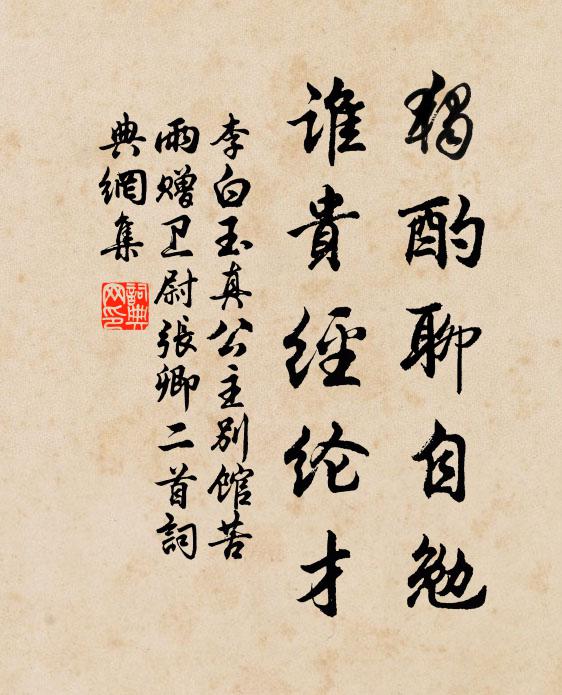 独酌聊自勉
誰貴經纶才
李白玉真公主別馆苦
雨赠卫尉張卿二首詞
典網集
詞典
网印